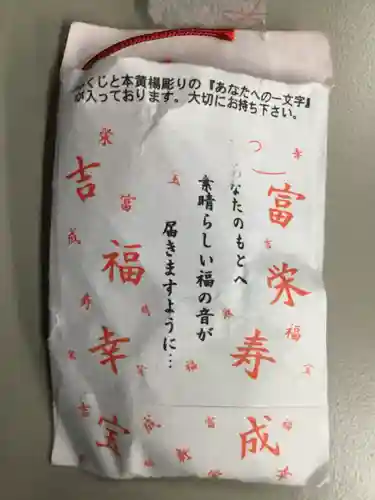 くじと本黄楊彫りの『あなたへの一文字』
が入っております。大切にお持ち下さい。
あなたのもとへ
素晴らしい福の音が
届きますように…
富
栄
寿
成
吉
福
幸
宝
栄
富
成
寿
幸
吉
福
宝